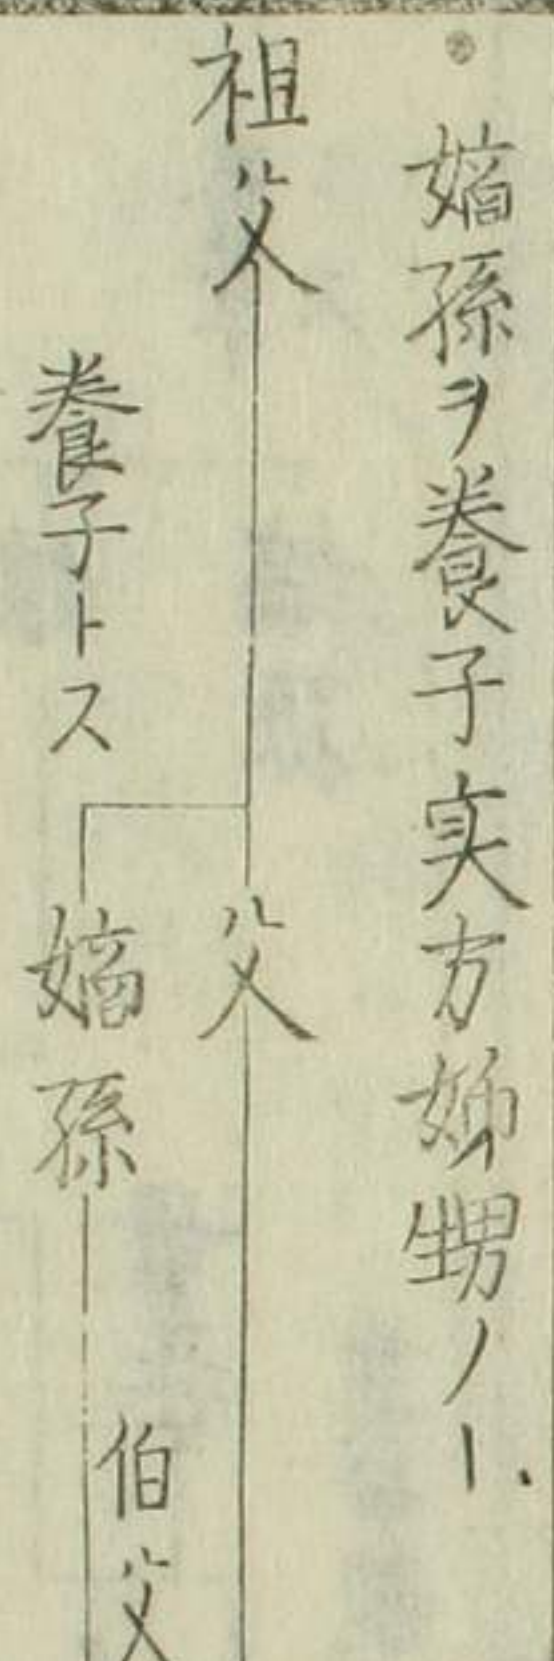 嫡孫ヲ養子実方姉甥ノヿ
祖父
父
養子トス
嫡孫
伯父